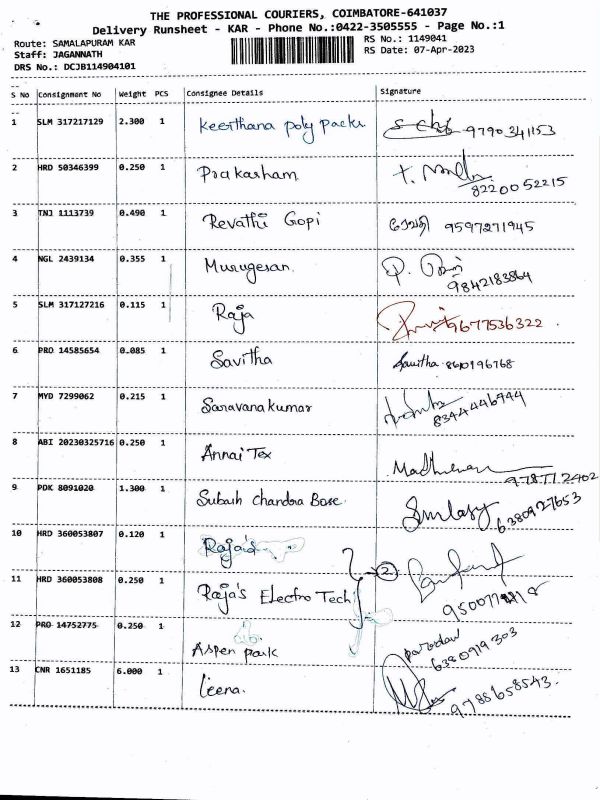 THE PROFESSIONAL COURIERS, COIMBATORE-641037
Delivery Runsheet - KAR - Phone No.:0422-3505555 - Page No.:1
Route: SAMALAPURAM KAR
RS No.: 1149041
Staff: JAGANNATH
RS Date: 07-Apr-2023
DRS No.: DCJB114904101
S No Consignment No Weight PCS Consignee Details Signature
1 SLM 317217129 2.300 1 Keerthana poly packs 9790341153
2 HRD 50346399 0.250 1 Prakasham 8220052215
3 TNJ 1113739 0.490 1 Revathi Gopi ரேவதி 9597271945
4 NGL 2439134 0.355 1 Murugesan 9842183864
5 SLM 317127216 0.115 1 Raja 9677536322
6 PRO 14585654 0.085 1 Savitha Savitha 8610196768
7 MYD 7299062 0.215 1 Saravanakumar 8344446944
8 ABI 20230325716 0.250 1 Annai Tex
9 PDK 8091020 1.300 1 Subash Chandra Bose 6380927653
10 HRD 360053807 0.120 1 Raja's
2
11 HRD 360053808 0.250 1 Raja's Electro Tech
12 PRO 14752775 0.250 1 Aspen park 6380919303
13 CNR 1651185 6.000 1 Leena. 9788658543.